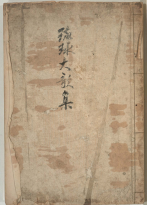 琉球大歌集